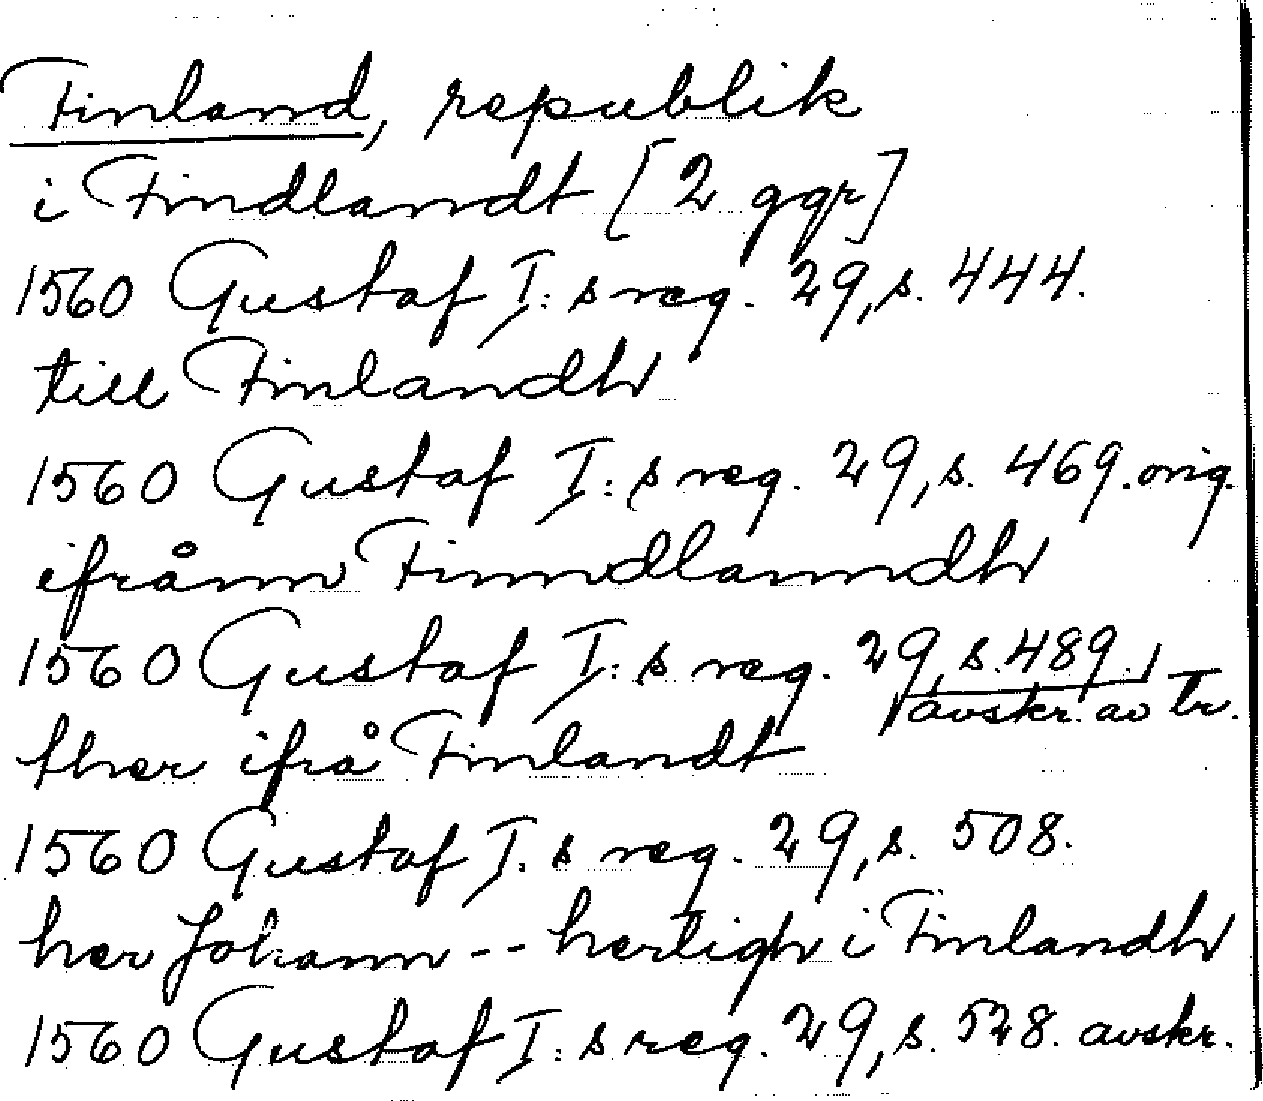 Finland, republik
i Findlandt [2 ggr]
1560 Gustaf I:s reg. 29, s. 444.
till Finlandh
1560 Gustaf I:s reg. 29, s. 469. orig.
ifrånn Finndlanndh
1560 Gustaf I:s reg. 29, s. 489. avskr. av tr.
ther ifrå Finlandt
1560 Gustaf I:s reg. 29, s. 508.
her Johann -- hertigh i Finlandh
1560 Gustaf I:s reg. 29, s. 528. avskr.